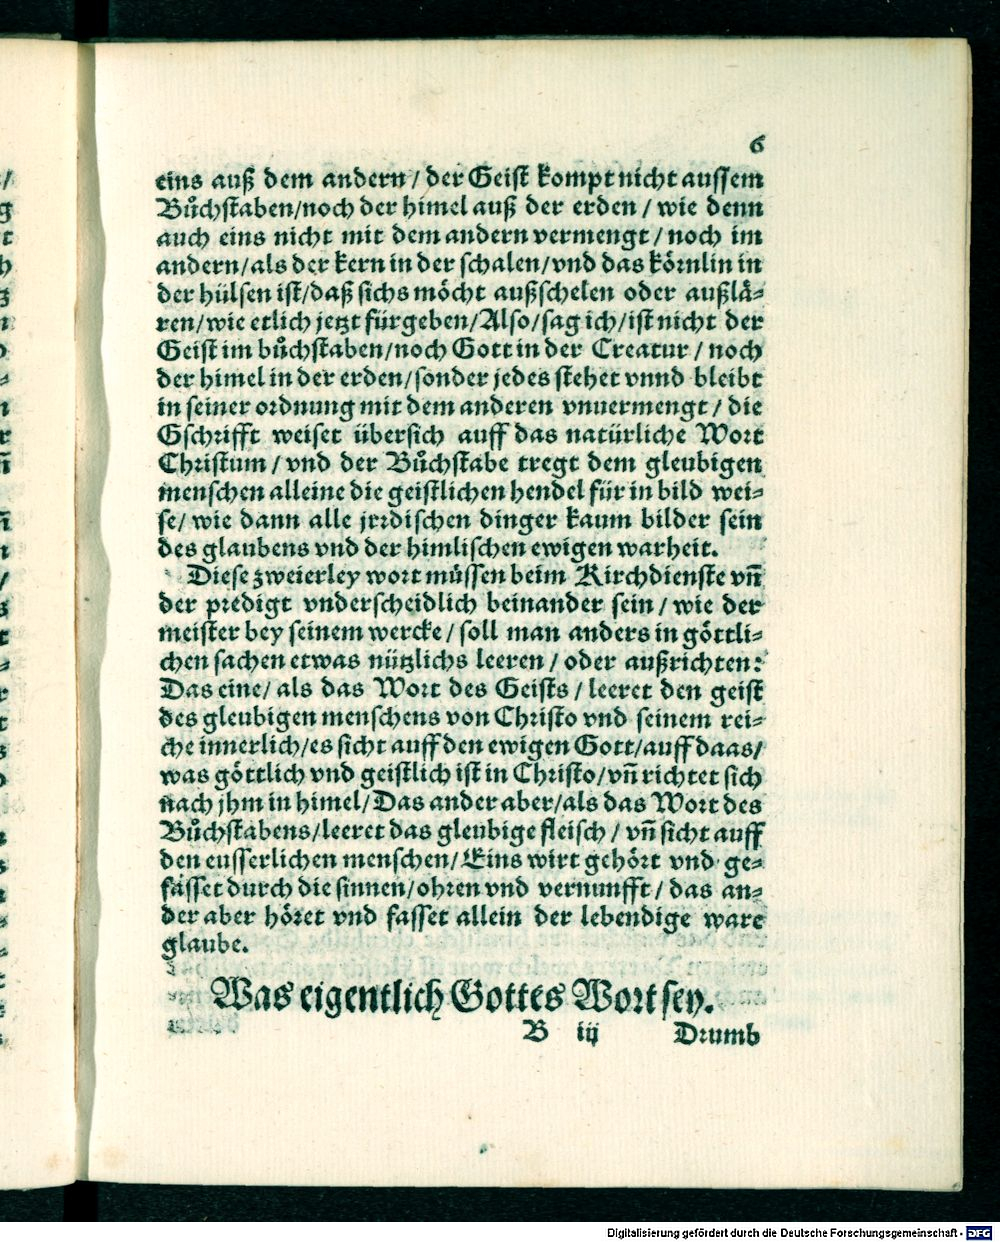 6
eins auß dem andern / der Geist kompt nicht aussem
Bůchstaben/noch der himel auß der erden / wie denn
auch eins nicht mit dem andern vermengt / noch im
andern/als der kern in der schalen/vnd das körnlin in
der hülsen ist/daß sichs möcht außschelen oder außlä⸗
ren/wie etlich jetzt fürgeben/Also/sag ich/ist nicht der
Geist im bůchstaben/noch Gott in der Creatur / noch
der himel in der erden/sonder jedes stehet vnnd bleibt
in seiner ordnung mit dem anderen vnuermengt / die
Gschrifft weiset übersich auff das natürliche Wort
Christum / vnd der Bůchstabe tregt dem gleubigen
menschen alleine die geistlichen hendel für in bild wei⸗
se/ wie dann alle jrrdischen dinger kaum bilder sein
des glaubens vnd der himlischen ewigen warheit.
Diese zweierley wort müssen beim Kirchdienste vñ
der predigt vnderscheidlich beinander sein / wie der
meister bey seinem wercke / soll man anders in göttli⸗
chen sachen etwas nützlichs leeren / oder außrichten:
Das eine/ als das Wort des Geists / leeret den geist
des gleubigen menschens von Christo vnd seinem rei⸗
che innerlich/es sicht auff den ewigen Gott/auff daas/
was göttlich vnd geistlich ist in Christo/vñ richtet sich
nach jhm in himel/Das ander aber/als das Wort des
Bůchstabens/leeret das gleubige fleisch / vñ sicht auff
den eusserlichen menschen/Eins wirt gehört vnd ge⸗
fasset durch die sinnen/ohren vnd vernunfft / das an⸗
der aber höret vnd fasset allein der lebendige ware
glaube.
Was eigentlich Gottes Wort sey.
B iij Drumb
Digitalisierung gefördert durch die Deutsche Forschungsgemeinschaft - DFG